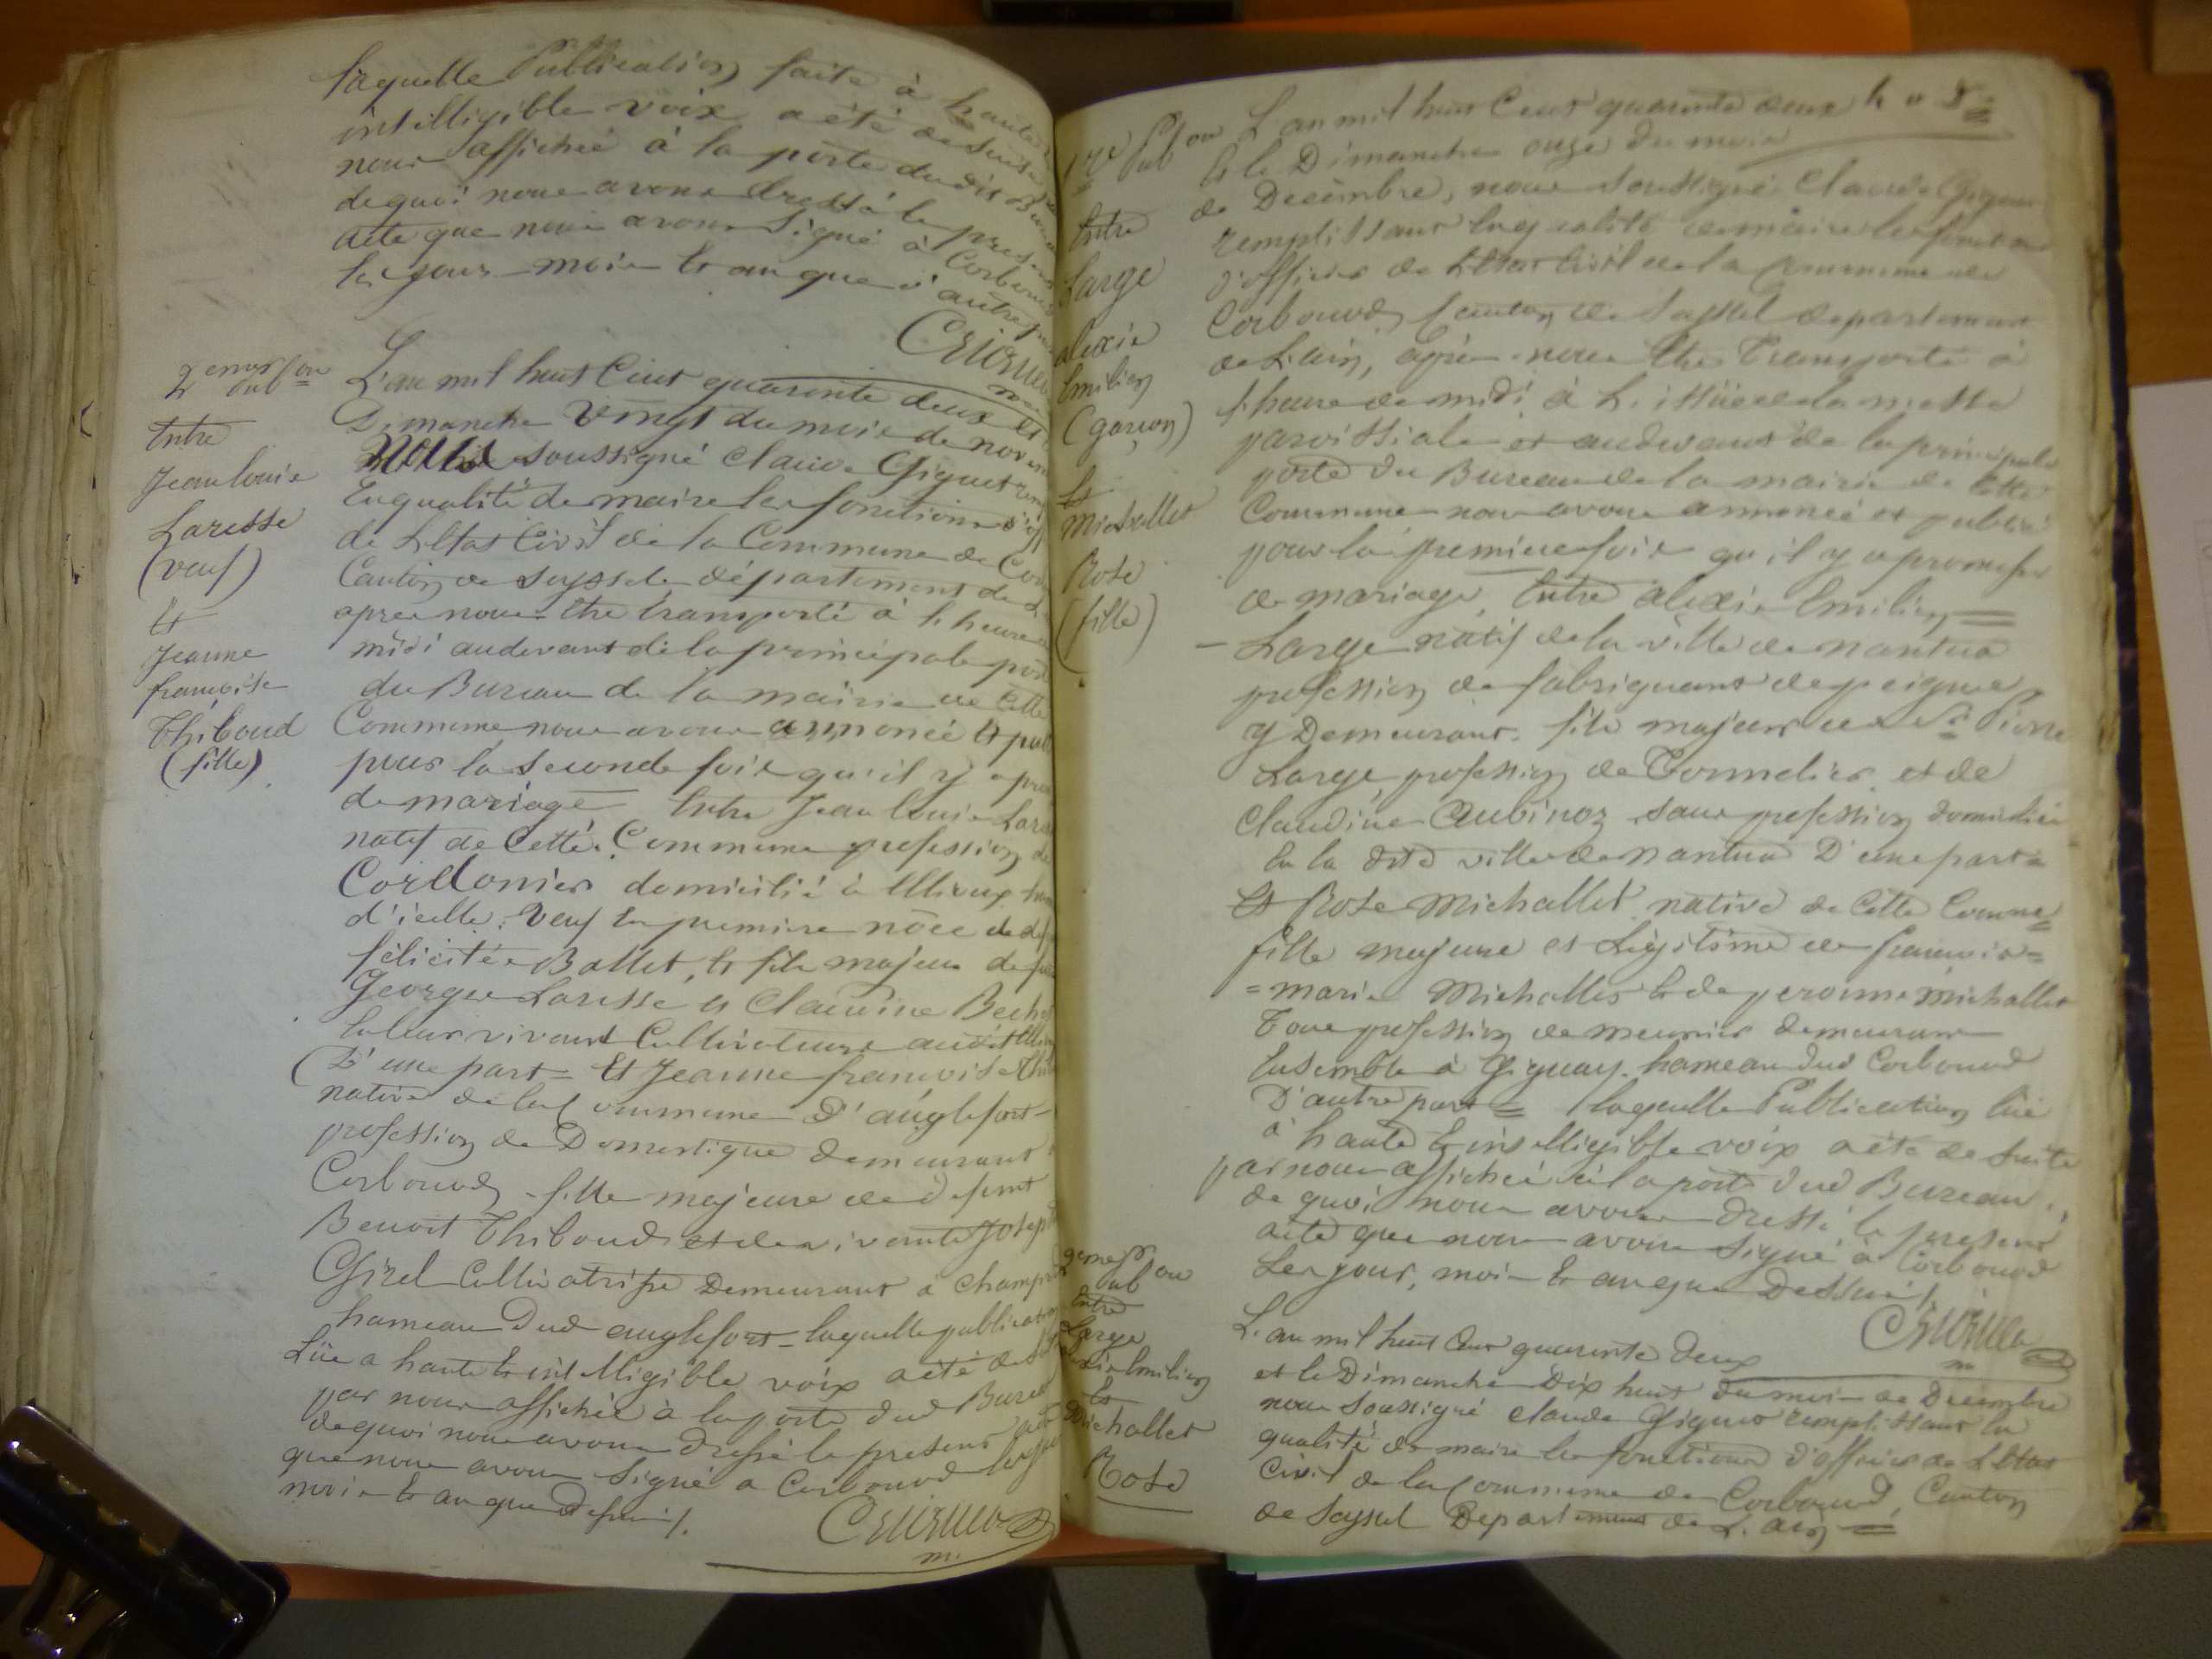 laquelle Publication faite à haute
intelligible voix a été de suite
nous affichée à la porte dudit Bureau
de quoi nous avons dressé le present
acte que nous avons signé à Corbonod
les jour mois et an que d'autre part
2eme Pub on
Entre
Jean louis
Laresse
(veuf)
Et
Jeanne
françoise
Thiboud
(fille)
L'an mil huit Cent quarante deux et
Dimanche vingt du mois de novem
nous soussigné Claude Giguet rem
En qualité de maire les fonctions d'off
de L'Etat Civil de la Commune de Cor
Canton de Seyssel département de L
apres nous être transporté à h heure
midi au devant de la principale porte
du Bureau de la mairie de Cette
Commune nous avons annoncé et pub
pour la seconde fois qu'il y a prom
de mariage Entre Jean Louis Lares
natif de Cette Commune profession de
Cordonier domicilié à Ham
d'icelle, veuf En premiere noce de def
félicitée Ballet, et fils majeur de feu
George Laresse et Claudine Bech
En leur vivant Cultivateurs audit
D'une part = Et Jeanne françoise Thib
native de la Commune D'anglefort
profession de Domestique demeurant
Corbonod, fille majeure de defunt
Benoit Thiboud et de vivante Joseph
Girel Cultivatrisse Demeurant à Champ
hameau Dud anglefort = laquelle publication
Lüe a haute et intelligible voix a été de suite
par nous affichée à la porte dud Bureau
de quoi nous avons dressé le present acte
que nous avons signé a Corbonod les jour
mois et an que dessus /.
m.
1ere Pub on
Entre
Large
alexis
Emilien
(garçon)
Et
Michallet
Rose
(fille)
L'an mil huit Cent quarante deux
Et le Dimanche onze du mois
de Decembre, nous soussigné Claude Giguet
remplissant En qualité de maire les fonctions
d'officier de L'Etat Civil de la Commune de
Corbonod, Canton de Seyssel departement
de L'ain, après nous être transporté à
h heure de midi à L'issüe de la messe
paroissiale et au devant de la principale
porte du Bureau de la mairie de Cette
Commune nous avons annoncé et publié
pour la premiere fois qu'il y a promesse
de mariage, Entre alexis Emilien =
- Large natif de la ville de nantua
profession de fabriquant de peignes,
y Demeurant, fils majeur de Sr Pierre
Large, profession de Tonnelier et de
Claudine Aubinoz sans profession domiciliés
En la dite ville de nantua D'une part =
Et Rose Michallet native de Cette Comne
fille majeure et Légitime de francois =
= marie Michallet et de Michallet
Tous profession de meunier demeurant
Ensemble à Gignay hameau dud Corbonod
D'autre part = laquelle Publication lüe
à haute et intelligible voix a été de suite
par nous affichée à la porte dud Bureau,
de quoi nous avons dressé, le present
acte que nous avons signé à Corbonod
Les jour, mois et an que Dessus /.
2eme Pub on
Entre
Large
alexis Emilien
Et
Michallet
Rose
L'an mil huit Cent quarante deux
et le Dimanche Dix huit du mois de Decembre
nous soussigné Claude Giguet remplissant En
qualité de maire les fonctions d'officier de L'Etat
Civil de la Commune de Corbonod, Canton
de Seyssel Departement de L'ain =